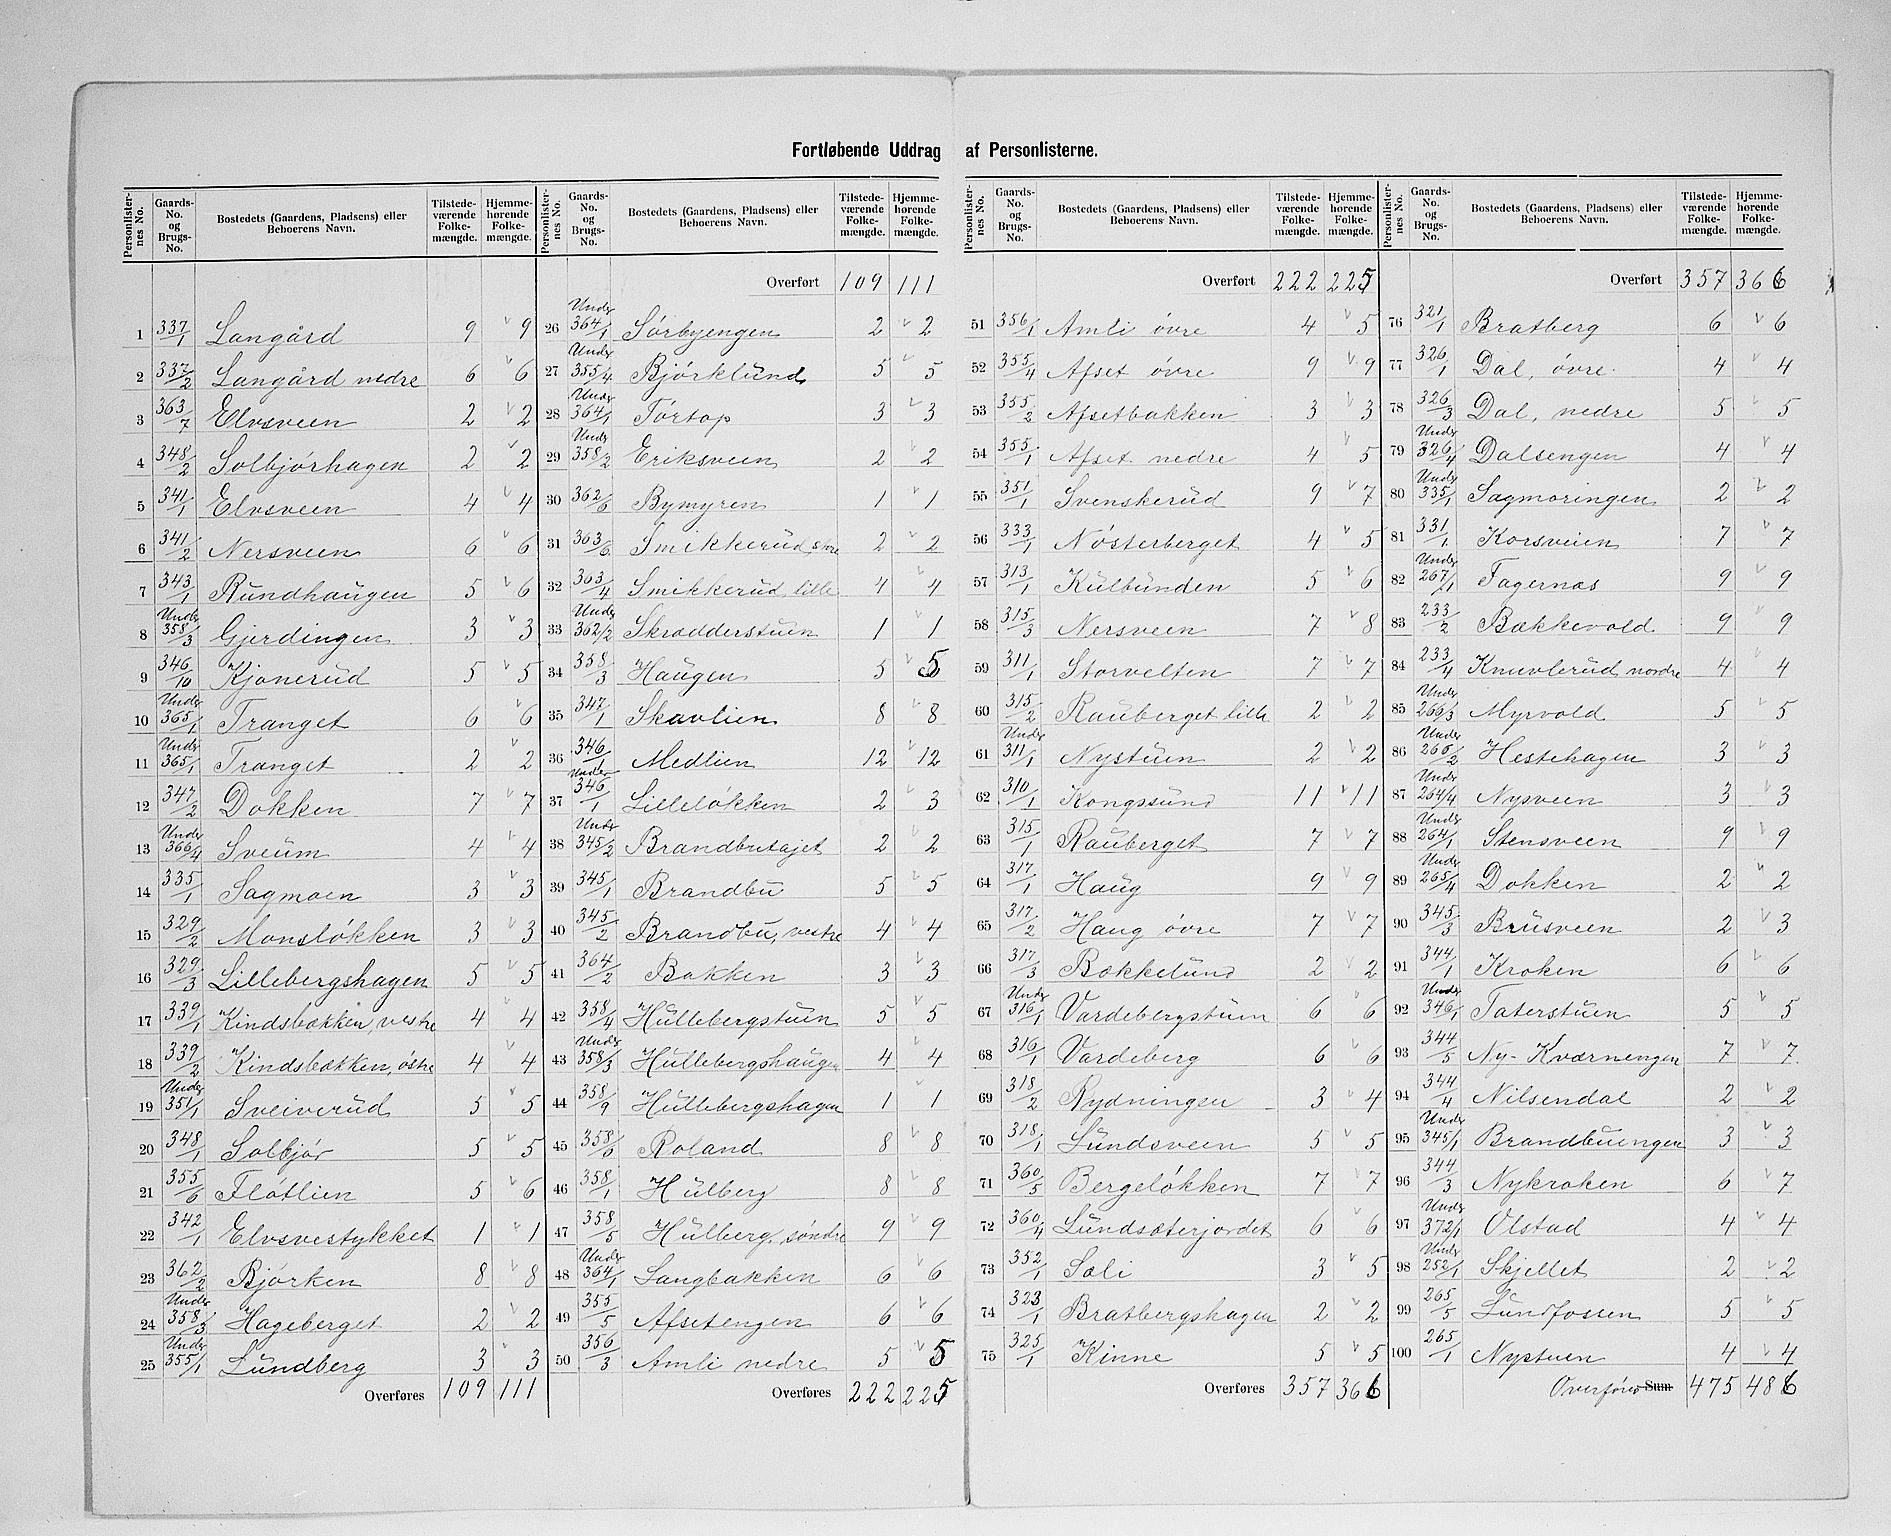 Fortløbende Uddrag af Personlisterne.
Personlister-nes No. | Gaards-No. og Brugs-No. | Bostedets (Gaardens, Pladsens) eller Beboerens Navn. | Tilstede-værende Folke-mængde. | Hjemme-hørende Folke-mængde.
1 337/1 Langård 9 9
2 337/2 Langård nedre 6 6
3 363/7 Elvsveen 2 2
4 348/2 Solbjørhagen 2 2
5 341/1 Elvsveen 4 4
6 341/2 Nersveen 6 6
7 343/1 Rundhaugen 5 6
8 Under 358/3 Gjerdingen 3 3
9 346/10 Kjønerud 5 5
10 Under 365/1 Tranget 6 6
11 Under 365/1 Tranget 2 2
12 347/2 Dokken 7 7
13 Under 366/4 Sveum 4 4
14 335/1 Sagmoen 3 3
15 329/2 Monsløkken 3 3
16 329/3 Lillebergshagen 5 5
17 339/1 Kindsbækken, vestre 4 4
18 339/2 Kindsbækken, østre 4 4
19 Under 351/1 Sveiverud 5 5
20 348/1 Solbjør 5 5
21 355/6 Fløtlien 5 6
22 342/1 Elvsvestykket 1 1
23 362/2 Bjørken 8 8
24 Under 358/3 Hageberget 2 2
25 Under 355/1 Lundberg 3 3
Overføres 109 111
Personlister-nes No. | Gaards-No. og Brugs-No. | Bostedets (Gaardens, Pladsens) eller Beboerens Navn. | Tilstede-værende Folke-mængde. | Hjemme-hørende Folke-mængde.
Overført 109 111
26 Under 364/1 Sørbyengen 2 2
27 Under 355/4 Bjørklund 5 5
28 Under 364/1 Tørtop 3 3
29 Under 358/2 Eriksveen 2 2
30 362/6 Bymyren 1 1
31 363/6 Smikkerud, store 2 2
32 363/4 Smikkerud, lille 4 4
33 Under 362/2 Skrædderstuen 1 1
34 358/3 Haugen 5 5
35 347/1 Skavlien 8 8
36 346/1 Medlien 12 12
37 Under 346/1 Lilleløkken 2 3
38 Under 345/2 Brandbutajet 2 2
39 345/1 Brandbu 5 5
40 345/2 Brandbu, vestre 4 4
41 364/2 Bakken 3 3
42 358/4 Hullebergstuen 5 5
43 Under 358/3 Hullebergshaugen 4 4
44 358/9 Hullebergshagen 1 1
45 358/6 Roland 8 8
46 358/1 Hulberg 8 8
47 358/5 Hulberg, søndre 9 9
48 Under 364/1 Langbakken 6 6
49 355/5 Afsetengen 6 6
50 356/3 Amli nedre 5 5
Overføres 222 225
Personlister-nes No. | Gaards-No. og Brugs-No. | Bostedets (Gaardens, Pladsens) eller Beboerens Navn. | Tilstede-værende Folke-mængde. | Hjemme-hørende Folke-mængde.
Overført 222 225
51 356/1 Amli øvre 4 5
52 355/4 Afset øvre 9 9
53 355/2 Afsetbakken 3 3
54 355/1 Afset nedre 4 5
55 351/1 Svenskerud 9 7
56 333/1 Nøsterberget 4 5
57 313/1 Kulbunden 5 6
58 315/3 Nersveen 7 8
59 311/1 Storvelten 7 7
60 315/2 Rauberget lille 2 2
61 Under 311/1 Nystuen 2 2
62 310/1 Kongssund 11 11
63 315/1 Rauberget 7 7
64 317/1 Haug 9 9
65 317/2 Haug øvre 7 7
66 317/3 Bækkelund 2 2
67 Under 316/1 Vardebergstuen 6 6
68 316/1 Vardeberg 6 6
69 318/2 Rydningen 3 4
70 318/1 Lundsveen 5 5
71 360/5 Bergeløkken 7 7
72 360/4 Lundsæterjordet 6 6
73 352/1 Sæli 3 5
74 323/1 Bratbergshagen 2 2
75 325/1 Kinne 5 5
Overføres 357 366
Personlister-nes No. | Gaards-No. og Brugs-No. | Bostedets (Gaardens, Pladsens) eller Beboerens Navn. | Tilstede-værende Folke-mængde. | Hjemme-hørende Folke-mængde.
Overført 357 366
76 321/1 Bratberg 6 6
77 326/1 Dal, øvre 4 4
78 326/3 Dal, nedre 5 5
79 Under 326/4 Dalsengen 4 4
80 Under 335/1 Sagmoringen 2 2
81 331/1 Korsveien 7 7
82 Under 267/1 Fagernæs 9 9
83 233/2 Bækkevold 9 9
84 233/4 Knuvlerud nordre 4 4
85 Under 266/3 Myrvold 5 5
86 Under 265/2 Hestehagen 3 3
87 Under 264/4 Nysveen 3 3
88 Under 264/1 Stensveen 9 9
89 Under 265/4 Dokken 2 2
90 345/3 Brusveen 2 3
91 344/1 Kroken 6 6
92 Under 346/1 Taterstuen 5 5
93 344/5 Ny-Kværnengen 7 7
94 344/4 Nilsendal 2 2
95 Under 345/1 Brandbuengen 3 3
96 344/3 Nykroken 6 7
97 Under 372/1 Ulstad 4 4
98 Under 252/1 Skjellet 2 2
99 265/5 Lundfossen 5 5
100 265/1 Nystuen 4 4
Overføres Sum 475 486